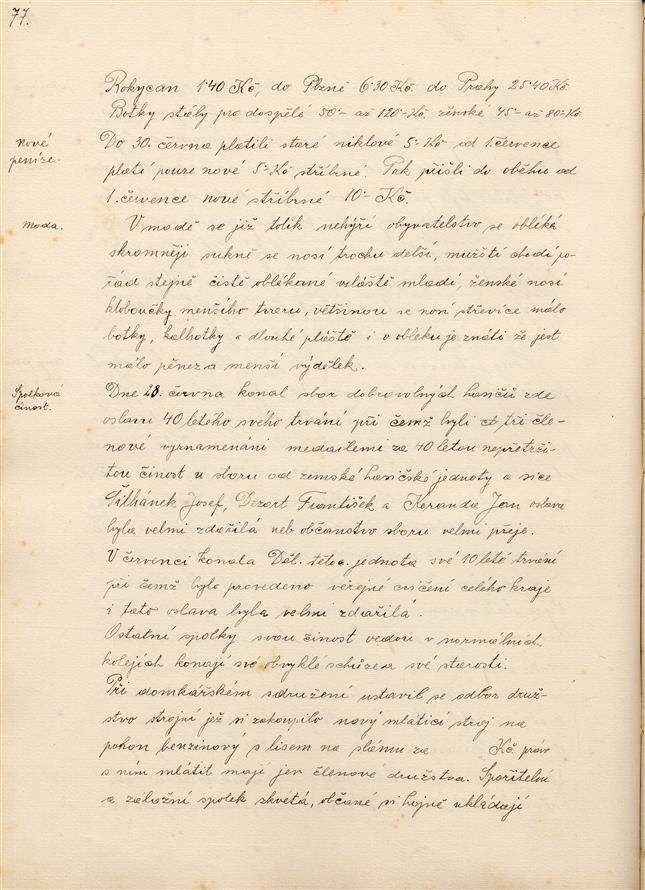 77.
Rokycan 1·40 Kč, do Plzně 6·30 Kč. do Prahy 25·40 Kč
Botky stály pro dospělé 50·– až 120·– Kč, ženské 45·– až 80·– Kč
Nové
peníze.
Do 30. června platili staré niklové 5·– Kč od 1. července
platí pouze nové 5·– Kč stříbrné. Pak přišli do oběhu od
1. července nové stříbrné 10·– Kč.
Moda.
V modě se již tolik nehýří obyvatelstvo se obléká
skromněji sukně se nosí trochu delší, mužští chodí po-
řád stejně čistě oblékané zvláště mladí, ženské nosí
kloboučky menšího tvaru, většinou se nosí střevíce málo
botky, kalhotky a dlouhé pláště i v obleku je znáti že jest
málo peněz a menší výdělek.
Spolková
činost.
Dne 28. června konal sbor dobrovolných hasičů zde
oslavu 40 letého svého trvání při čemž byli tři čle-
nové vyznamenáni medailemi za 40 letou nepřetrži-
tou činost u sboru od zemské hasičské jednoty a sice
Šilhánek Josef, Dezort František a Karanda Jan oslava
byla velmi zdařilá neb občanstvo sboru velmi přeje.
V červenci konala Děl. těloc. jednota své 10 leté trvání
při čemž bylo provedeno veřejné cvičení celého kraje
i tato oslava byla velmi zdařilá.
Ostatní spolky svou činost vedou v normálních
kolejích konají své obvyklé schůze a své starosti.
Při domkářském sdružení ustavil se odbor druž-
stvo strojní jež si zakoupilo nový mlátící stroj na
pohon benzinový s lisem na slámu za Kč. právo
s ním mlátit mají jen členové družstva. Spořitelní
a záložní spolek zkvétá, občané si hojně ukládají